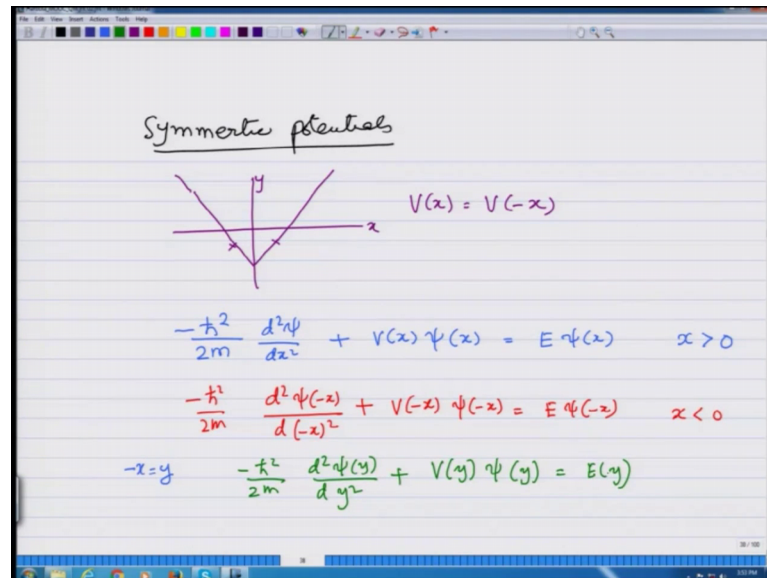 File Edit View Insert Actions Tools Help
Symmertic potentials
y
x
V(x) = V(-x)
-ħ²/2m d²ψ/dx² + V(x) ψ(x) = E ψ(x) x > 0
-ħ²/2m d²ψ(-x)/d(-x)² + V(-x) ψ(-x) = E ψ(-x) x < 0
-x = y -ħ²/2m d²ψ(y)/dy² + V(y) ψ(y) = E(y)
38